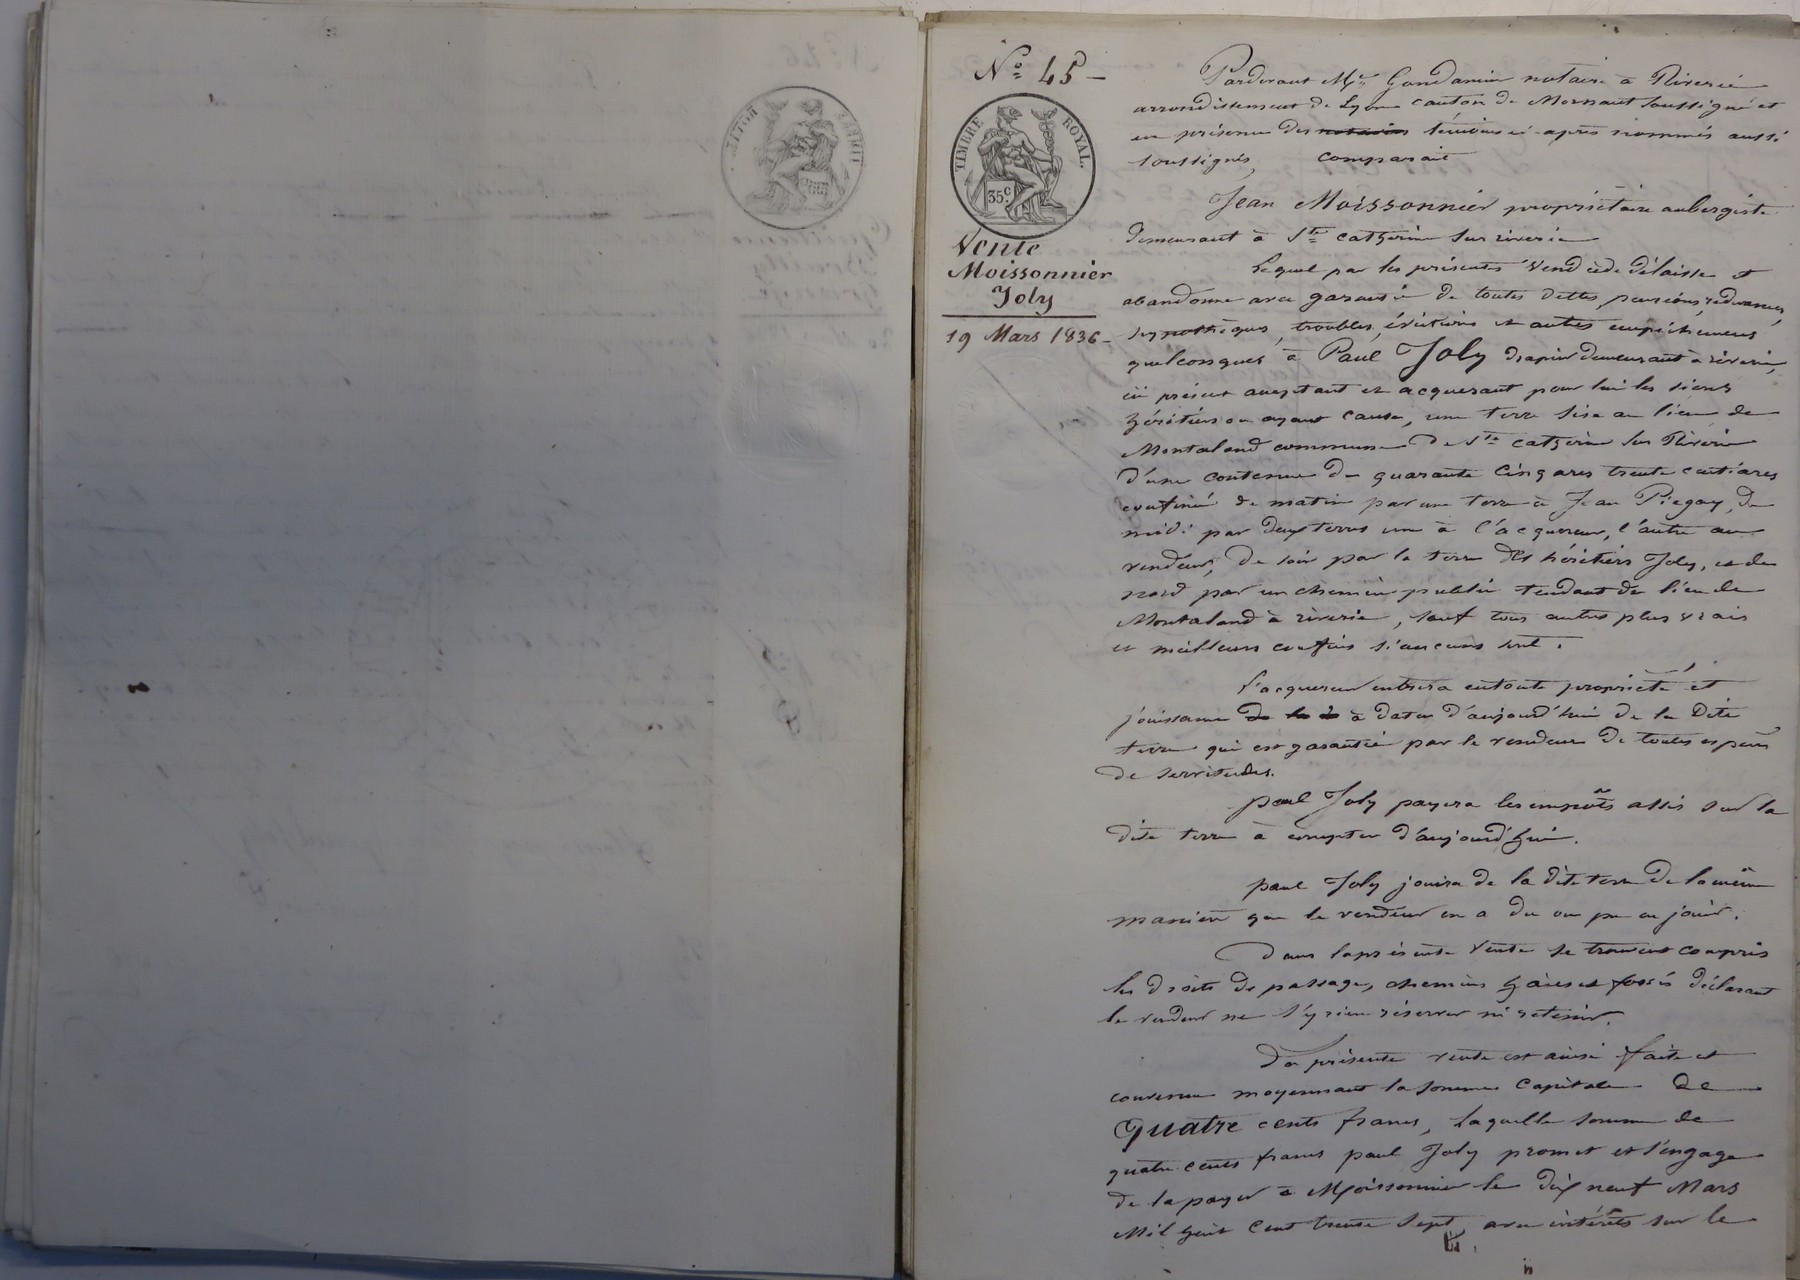 Nº 45 -
TIMBRE ROYAL.
35 c.
Vente
Moissonnier
Joly
19 Mars 1836 -
Pardevant Me Gondamin notaire à Riverie
arrondissement de Lyon canton de Mornant soussigné et
en présence des notaires témoins ci-après nommés aussi
soussignés, comparait
Jean Moissonnier propriétaire aubergiste
demeurant à Ste catherine sur riverie
Lequel par les présentes vend cède délaisse et
abandonne avec garantie de toutes dettes, pensions, redevances,
hypothèques, troubles, évictions et autres empêchemens
quelconques à Paul Joly drapier demeurant à riverie,
ici présent acceptant et acquerant pour lui les siens
héritiers ou ayant cause, une terre sise au lieu de
Montaland commune de Ste catherine sur Riverie
d'une contenue de quarante cinq ares trente centiares
confinée de matin par une terre à Jean Piegay, de
midi par deux terres une à l'acquereur, l'autre au
vendeur, de soir par la terre des héritiers Joly, et de
nord par un chemin public tendant du lieu de
Montaland à riverie, sauf tous autres plus vrais
et meilleurs confins s'aucuns sont.
L'acquereur entrera en toute propriété et
jouissance de la d à dater d'aujourd'hui de la dite
terre qui est garantie par le vendeur de toutes especes
de servitudes.
paul Joly payera les impots assis sur la
dite terre à compter d'aujourd'hui.
paul Joly jouira de la dite terre de la même
maniere que le vendeur en a du ou pu en jouir.
Dans la présente vente se trouvent compris
les droits de passages, chemins haies et fossés déclarant
le vendeur ne s'y rien réserver ni retenir.
La présente vente est ainsi faite et
convenue moyennant la somme capitale de
Quatre cents francs, laquelle somme de
quatre cents francs paul Joly promet et s'engage
de la payer à Moissonnier le dix neuf Mars
Mil huit cent trente sept, avec intérêts sur le